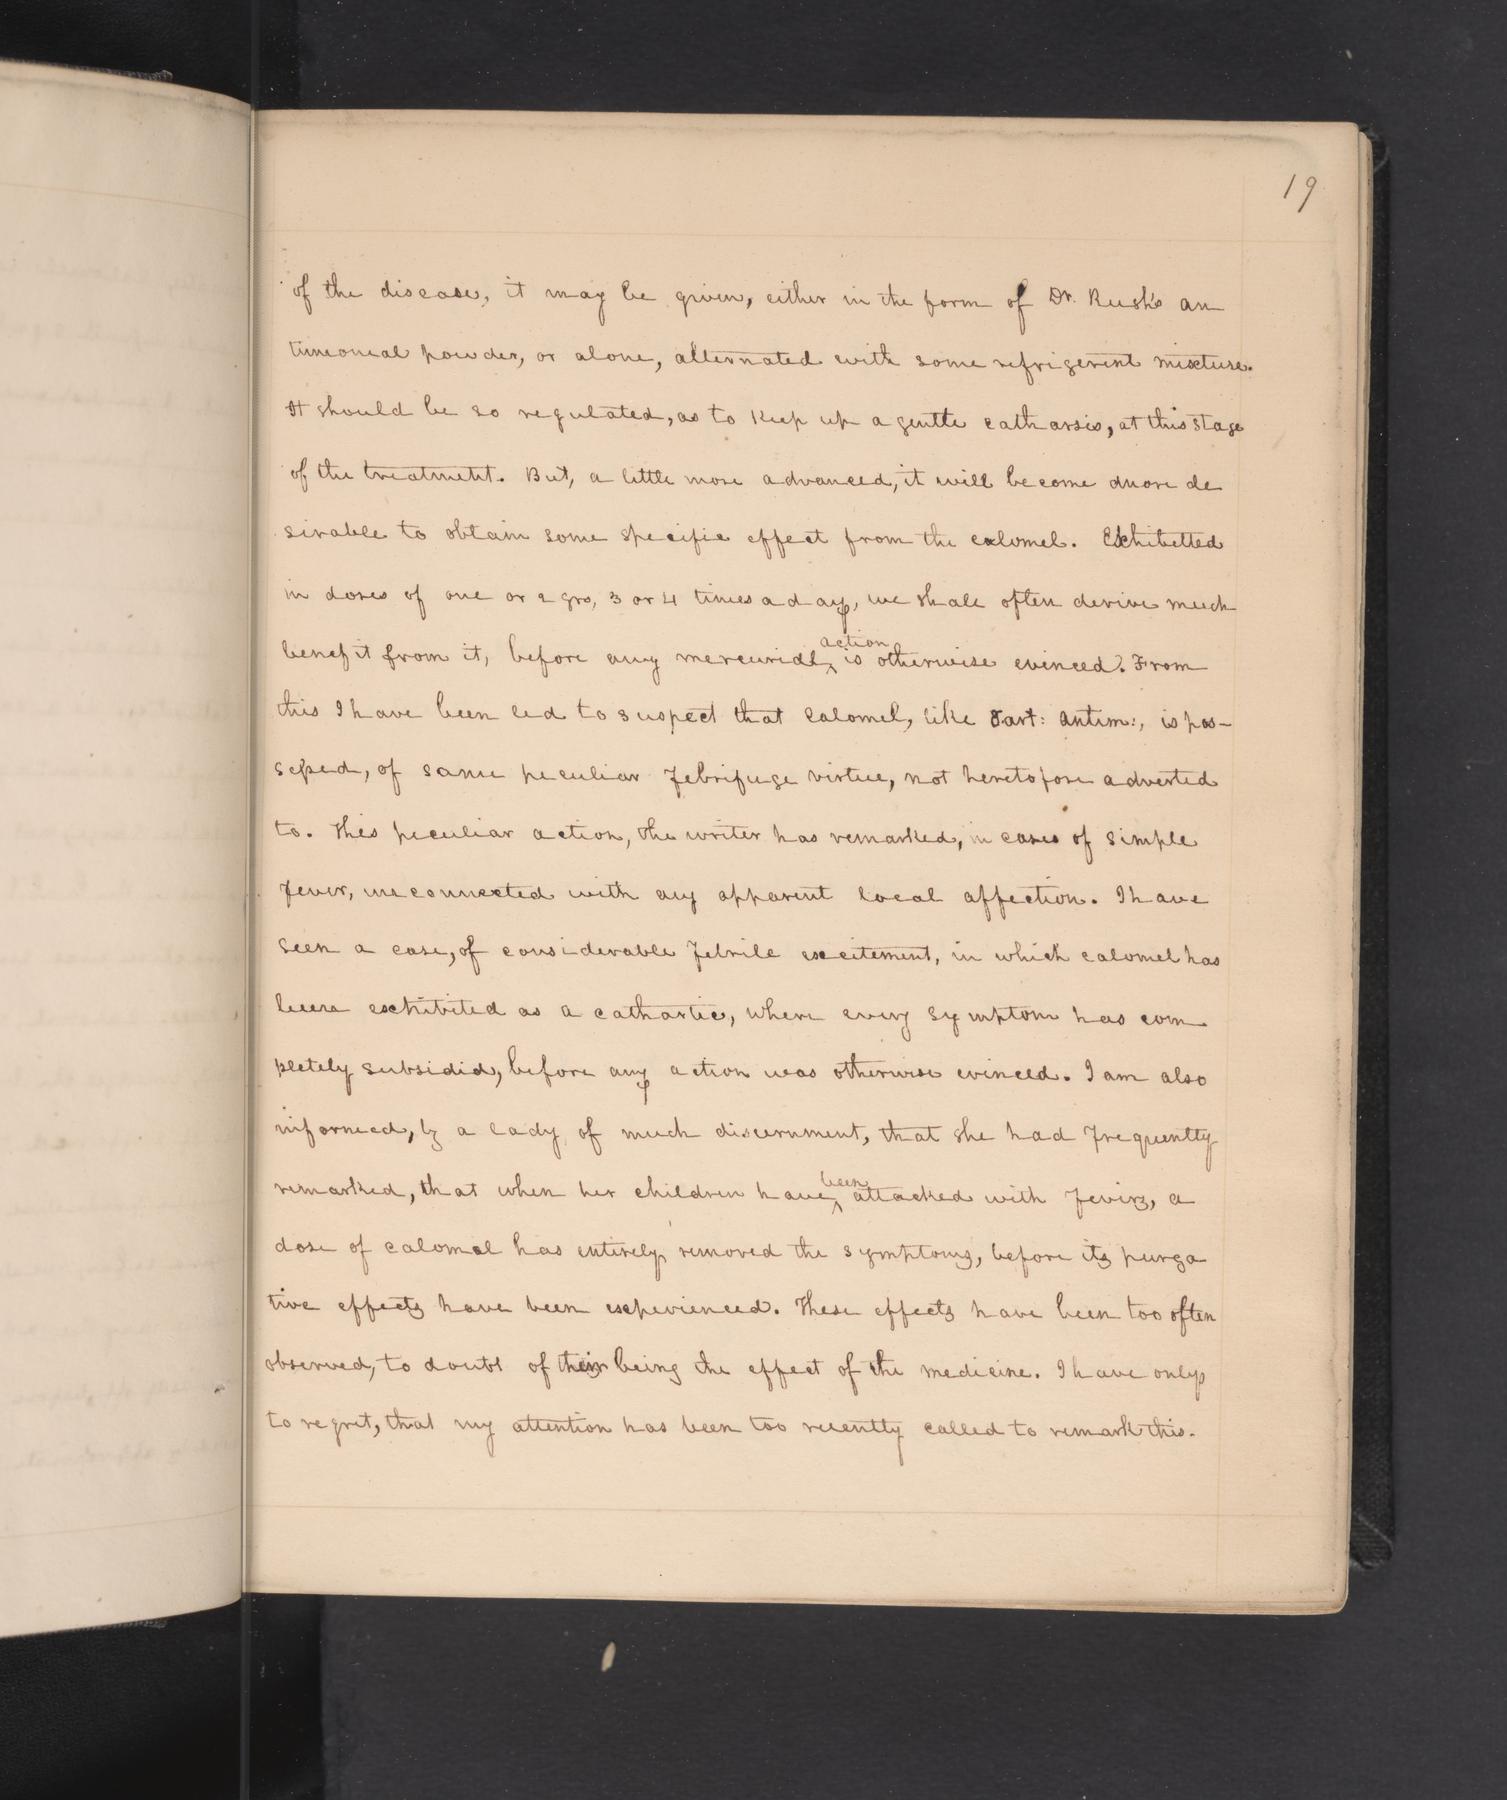 19
of the disease, it may be given, either in the form of Dr. Rush's an
timonial powder, or alone, alternated with some refrigerent mixture.
It should be so regulated, as to keep up a gentle catharsis, at this stage
of the treatment. But, a little more advanced, it will become more de
sirable to obtain some specific effect from the calomel. Exhibetted
in doses of one or 2 grs, 3 or 4 times a day, we shall often derive much
benefit from it, before any mercurial action is otherwise evinced. From
this I have been led to suspect that calomel, like Tart: Antim:, is pos-
sessed, of some peculiar febrifuge virtue, not heretofore adverted
to. This peculiar action, the writer has remarked, in cases of simple
fever, unconnected with any apparent local affection. I have
seen a case, of considerable febrile excitement, in which calomel has
been exhibited as a cathartic, where every symptom has com
pletely subsided, before any action was otherwise evinced. I am also
informed, by a lady of much discernment, that she had frequently
remarked, that when her children have been attacked with fevers, a
dose of calomel has entirely removed the symptoms, before its purga
tive effects have been experienced. These effects have been too often
observed, to doubt of their being the effect of the medicine. I have only
to regret, that my attention has been too recently called to remark this.